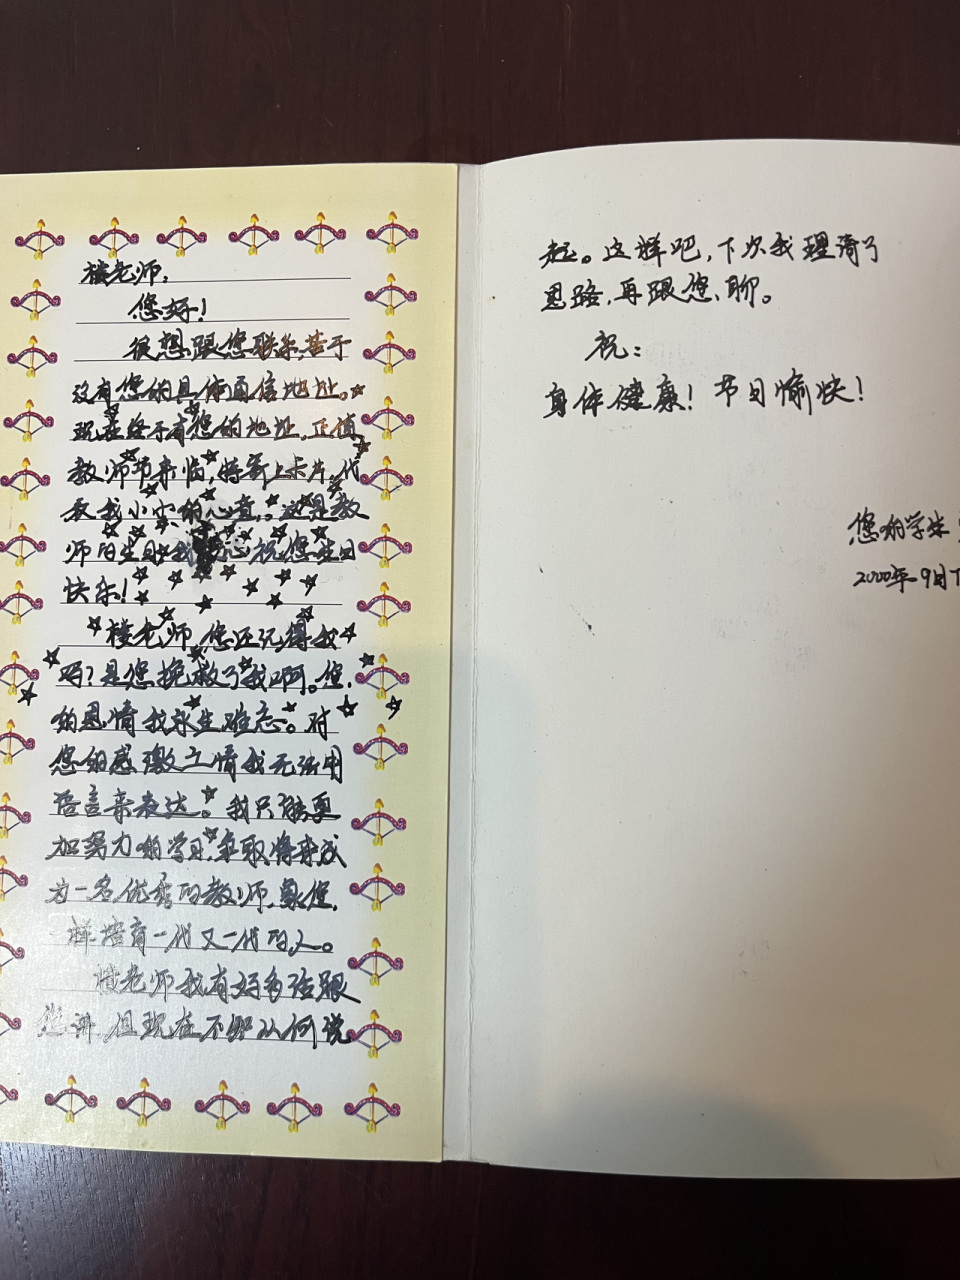 楼老师:
您好!
很想跟您联系,苦于
没有您的具体通信地址。
现在终于有您的地址,正值
教师节来临,特寄上卡片,代
表我小小的心意,这是教
师的生日,我 心祝您生日
快乐!
楼老师,您还记得我
吗?是您挽救了我啊。您
的恩情我永生难忘。对
您的感激之情我无法用
语言来表达。我只能更
加努力的学习,争取将来成
为一名优秀的教师,象您
一样培育一代又一代的人。
楼老师我有好多话跟
您讲,但现在不知从何说
起。这样吧,下次我理清了
思路,再跟您聊。
祝:
身体健康!节日愉快!
您的学生
2000年9月